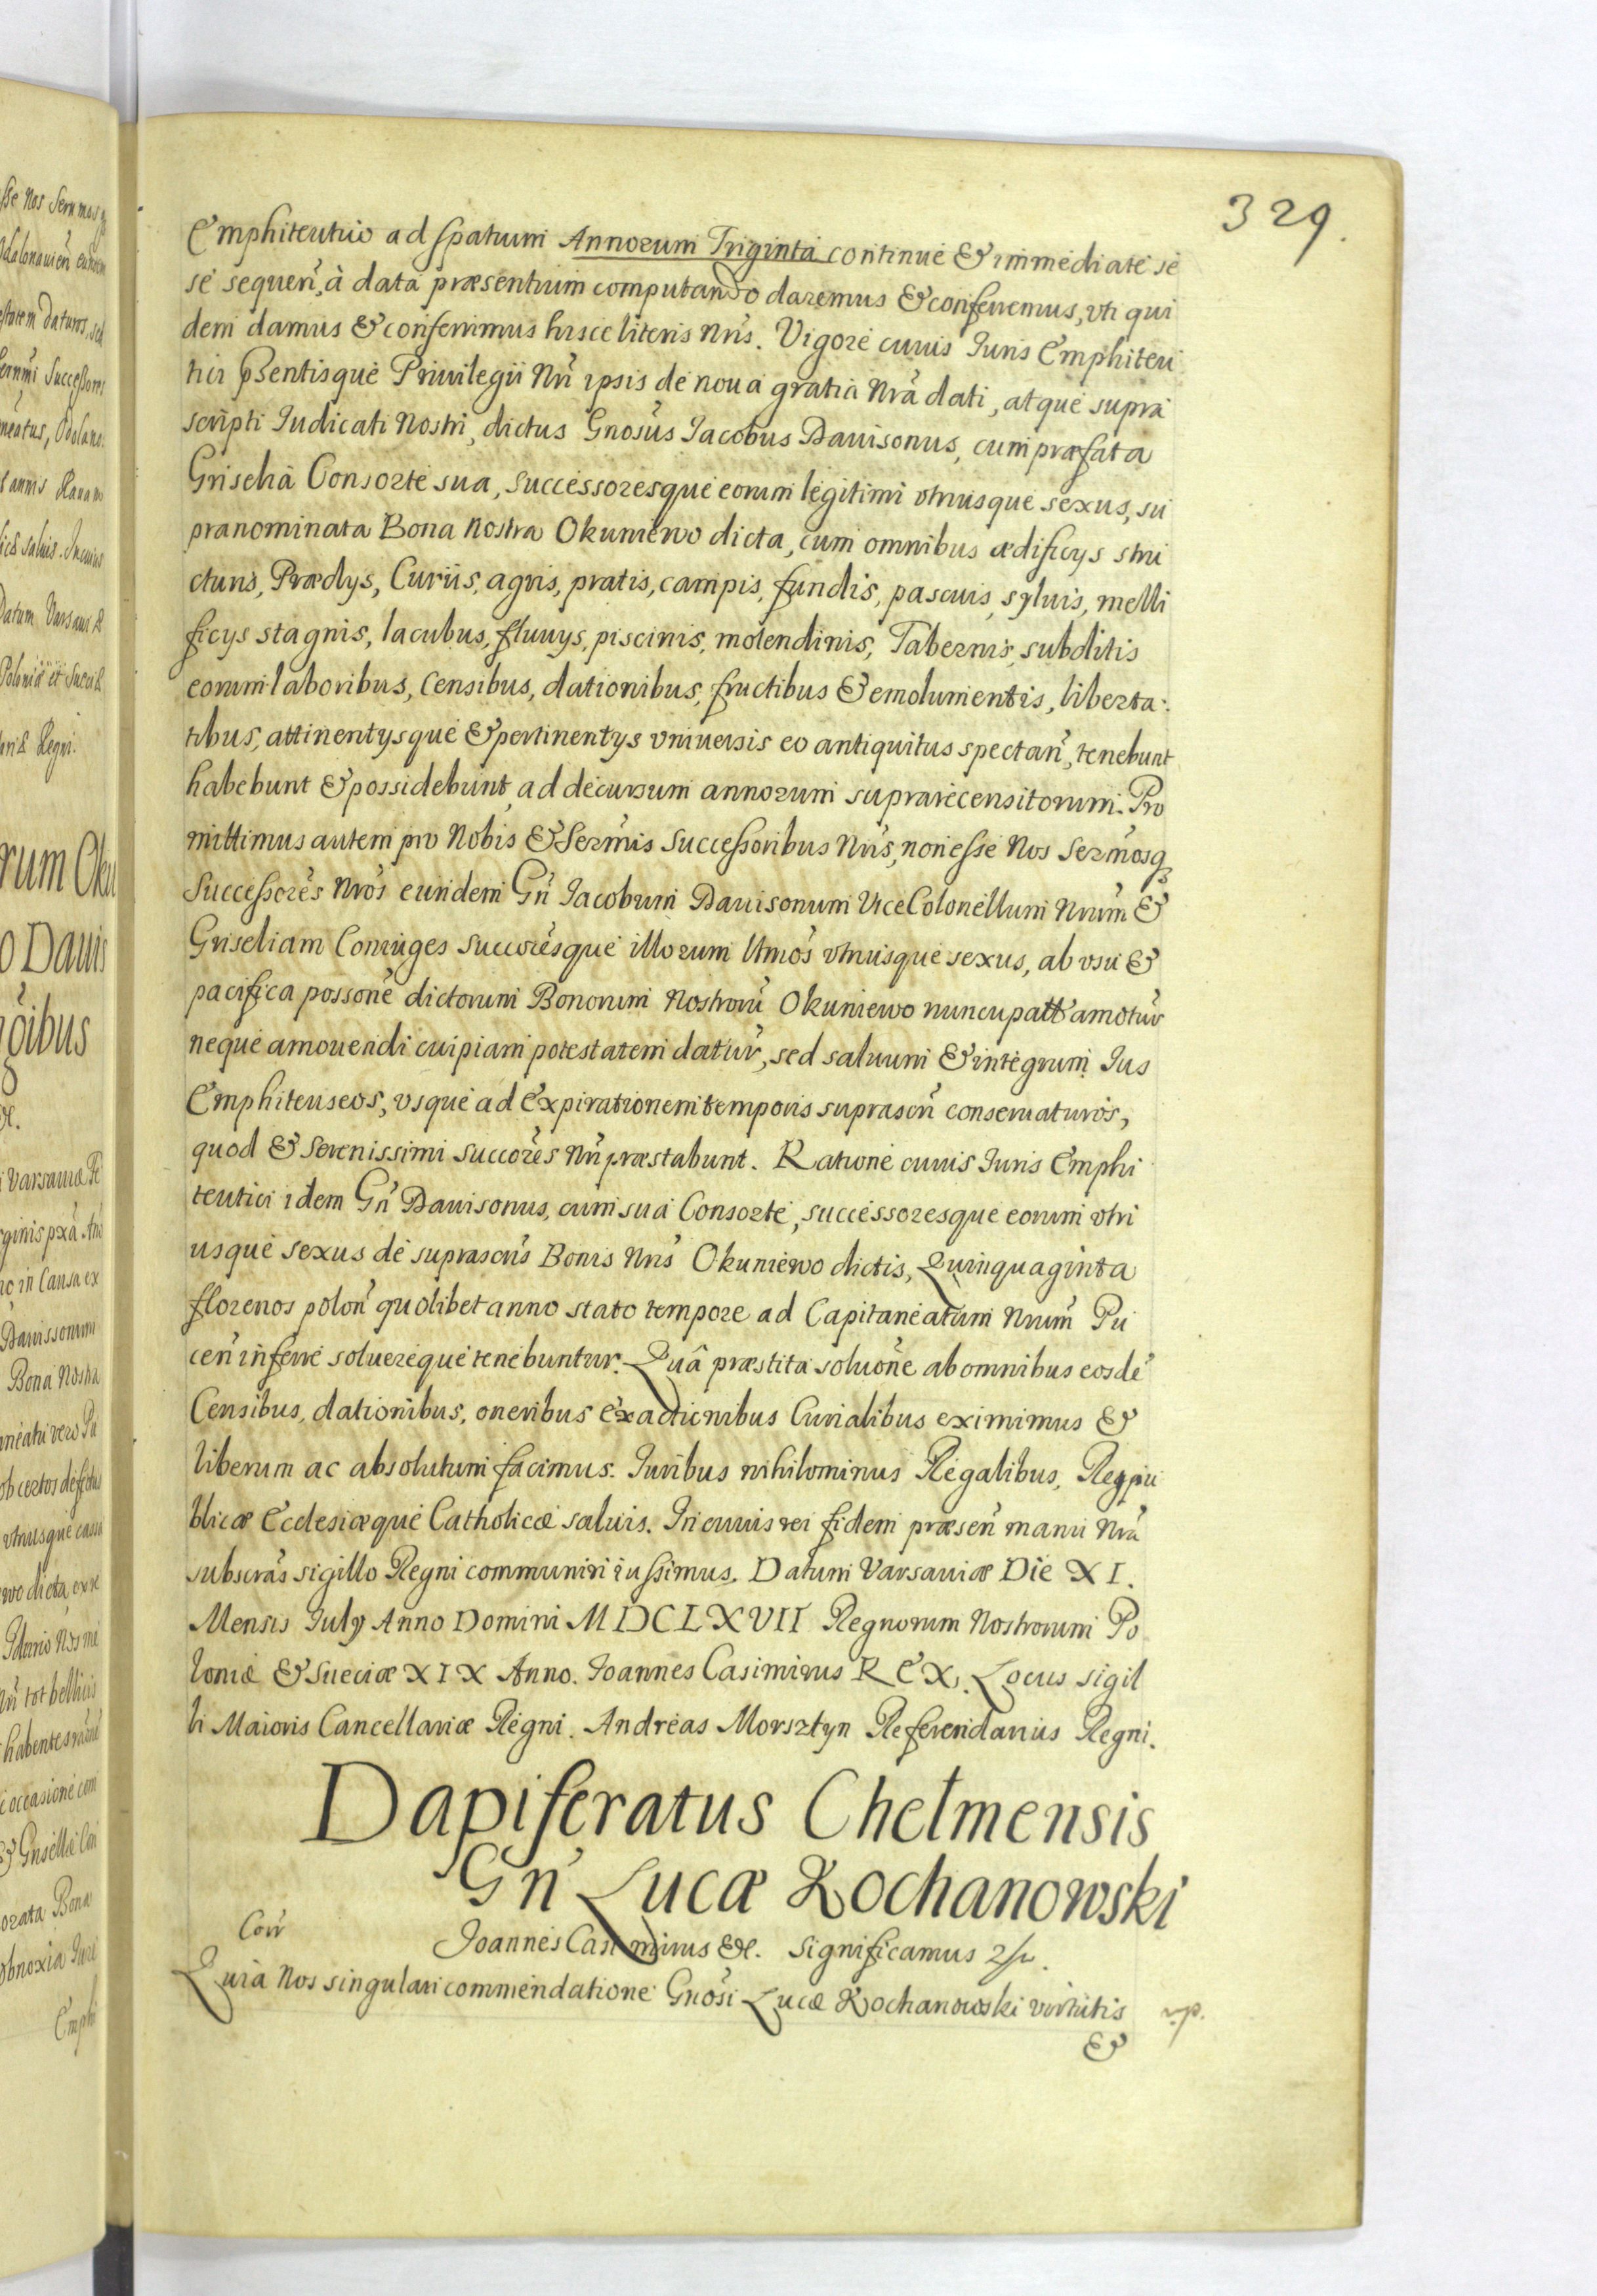 329.
Emphiteutico ad spatium Annorum Triginta continuè & immediatè sè
sè sequen̄, à data præsentium computando daremus & conferremus, vti qui
dem damus & conferimus hisce literis Nr̄is. Vigore cuius Iuris Emphiteu
tici p̄sentisque Privilegii Nr̄i ipsis de noua gratia Nr̄a dati, atque supra
scripti Iudicati Nostri, dictus Gnosūs Iacobus Dauisonus, cum præfata
Griselia Consorte sua, successoresque eorum legitimi vtriusque sexus, su
pranominata Bona Nostra Okuniewo dicta, cum omnibus ædificys stru
cturis, Prædys, Curiis, agris, pratis, campis, fundis, pascuis, syluis, melli
ficys stagnis, lacubus, fluuys, piscinis, molendinis, Tabernis, subditis
eorum laboribus, censibus, dationibus, fructibus & emolumentis, liberta:
tibus, attinentysque & pertinentys vniuersis eo antiquitus spectan̄, tenebunt
habebunt & possidebunt, ad decursum annorum suprarecensitorum. Pro
mittimus autem pro Nobis & Serm̄is Successoribus Nr̄is, non esse Nos Serm̄osq
Successores Nr̄os eundem Gn̄ Iacobum Dauisonum ViceColonellum Nr̄um &
Griseliam Coniuges succoresque illorum ltmōs vtriusque sexus, ab vsu &
pacifica possonē dictorum Bonorum Nostrorū Okuniewo nuncupatt amotūr
neque amouendi cuipiam potestatem datūr, sed saluum & integrum Ius
Emphiteuseos, vsque ad Expirationem temporis suprascri̅ conseruaturos,
quod & Serenissimi succorēs Nr̄i præstabunt. Ratione cuius Iuris Emphi
teutici idem Gn̄ Dauisonus, cum sua Consorte, successoresque eorum vtri
usque sexus de suprascrīs Bonis Nr̄is Okuniewo dictis, Quinquaginta
florenos polon̄ quolibet anno stato tempore ad Capitaneatum Nr̄um Pu
cen̄ inferre soluereque tenebuntur. Quâ præstita soluonē ab omnibus eosdē
Censibus, dationibus, oneribus exactionibus Curialibus eximimus &
liberum ac absolutum facimus. Iuribus nihilominus Regalibus, Reypu
blicæ Ecclesiæque Catholicæ saluis. In cuius rei fidem præsen̄ manu Nr̄a
subscrās sigillo Regni communiri iussimus. Datum Varsauiæ Die XI.
Mensis July Anno Domini MDCLXVII Regnorum Nostrorum Po
loniæ & Sueciæ XIX Anno. Ioannes Casimirus REX. Locus sigil
li Maioris Cancellariæ Regni. Andreas Morsztyn Referendarius Regni.
Dapiferatus Chelmensis
Gn̄ Lucæ Kochanowski
Corr
Ioannes Casimirus &c. Significamus
Quia Nos singulari commendatione Gnosī Lucæ Kochanowski virtutis
&